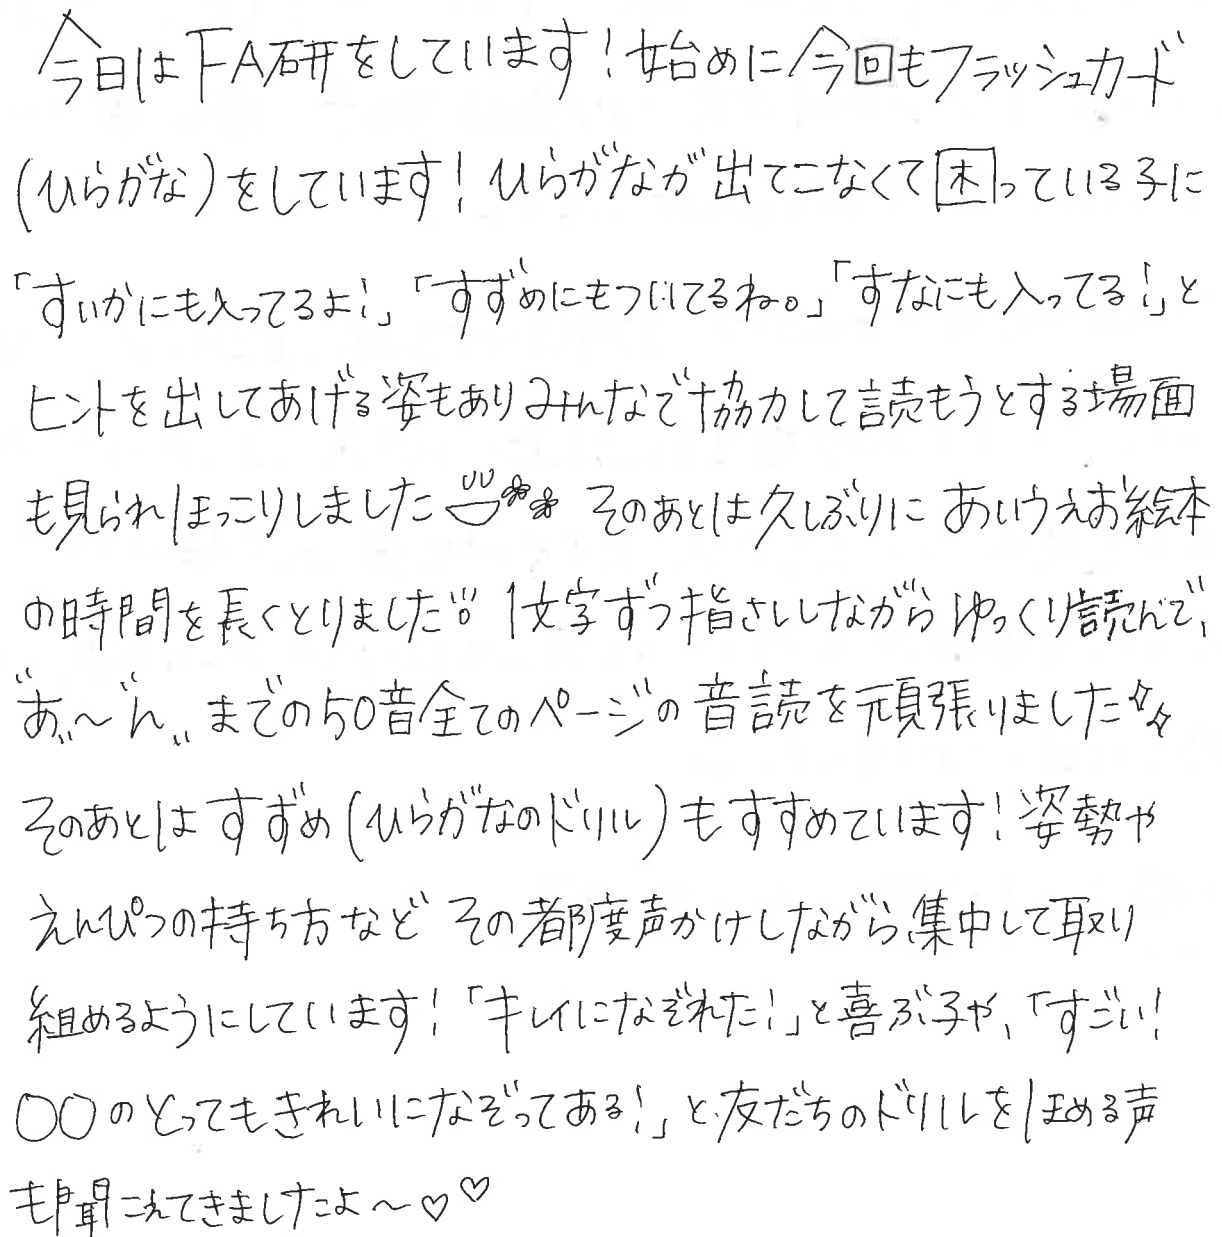 今日はFA研をしています！始めに今回もフラッシュカード
(ひらがな)をしています！ひらがなが出てこなくて困っている子に
「すいかにも入ってるよ！」「すずめにもついてるね。」「すなにも入ってる！」と
ヒントを出してあげる姿もありみんなで協力して読もうとする場面
も見られほっこりしました そのあとは久しぶりにあいうえお絵本
の時間を長くとりました!! 1文字ずつ指さししながらゆっくり読んで、
“あ„〜“ん„までの50音全てのページの音読を頑張りました
そのあとはすずめ(ひらがなのドリル)もすすめています！姿勢や
えんぴつの持ち方などその都度声かけしながら集中して取り
組めるようにしています！「キレイになぞれた！」と喜ぶ子や、「すごい！
〇〇のとってもきれいになぞってある！」と友だちのドリルをほめる声
も聞こえてきましたよ〜♡♡